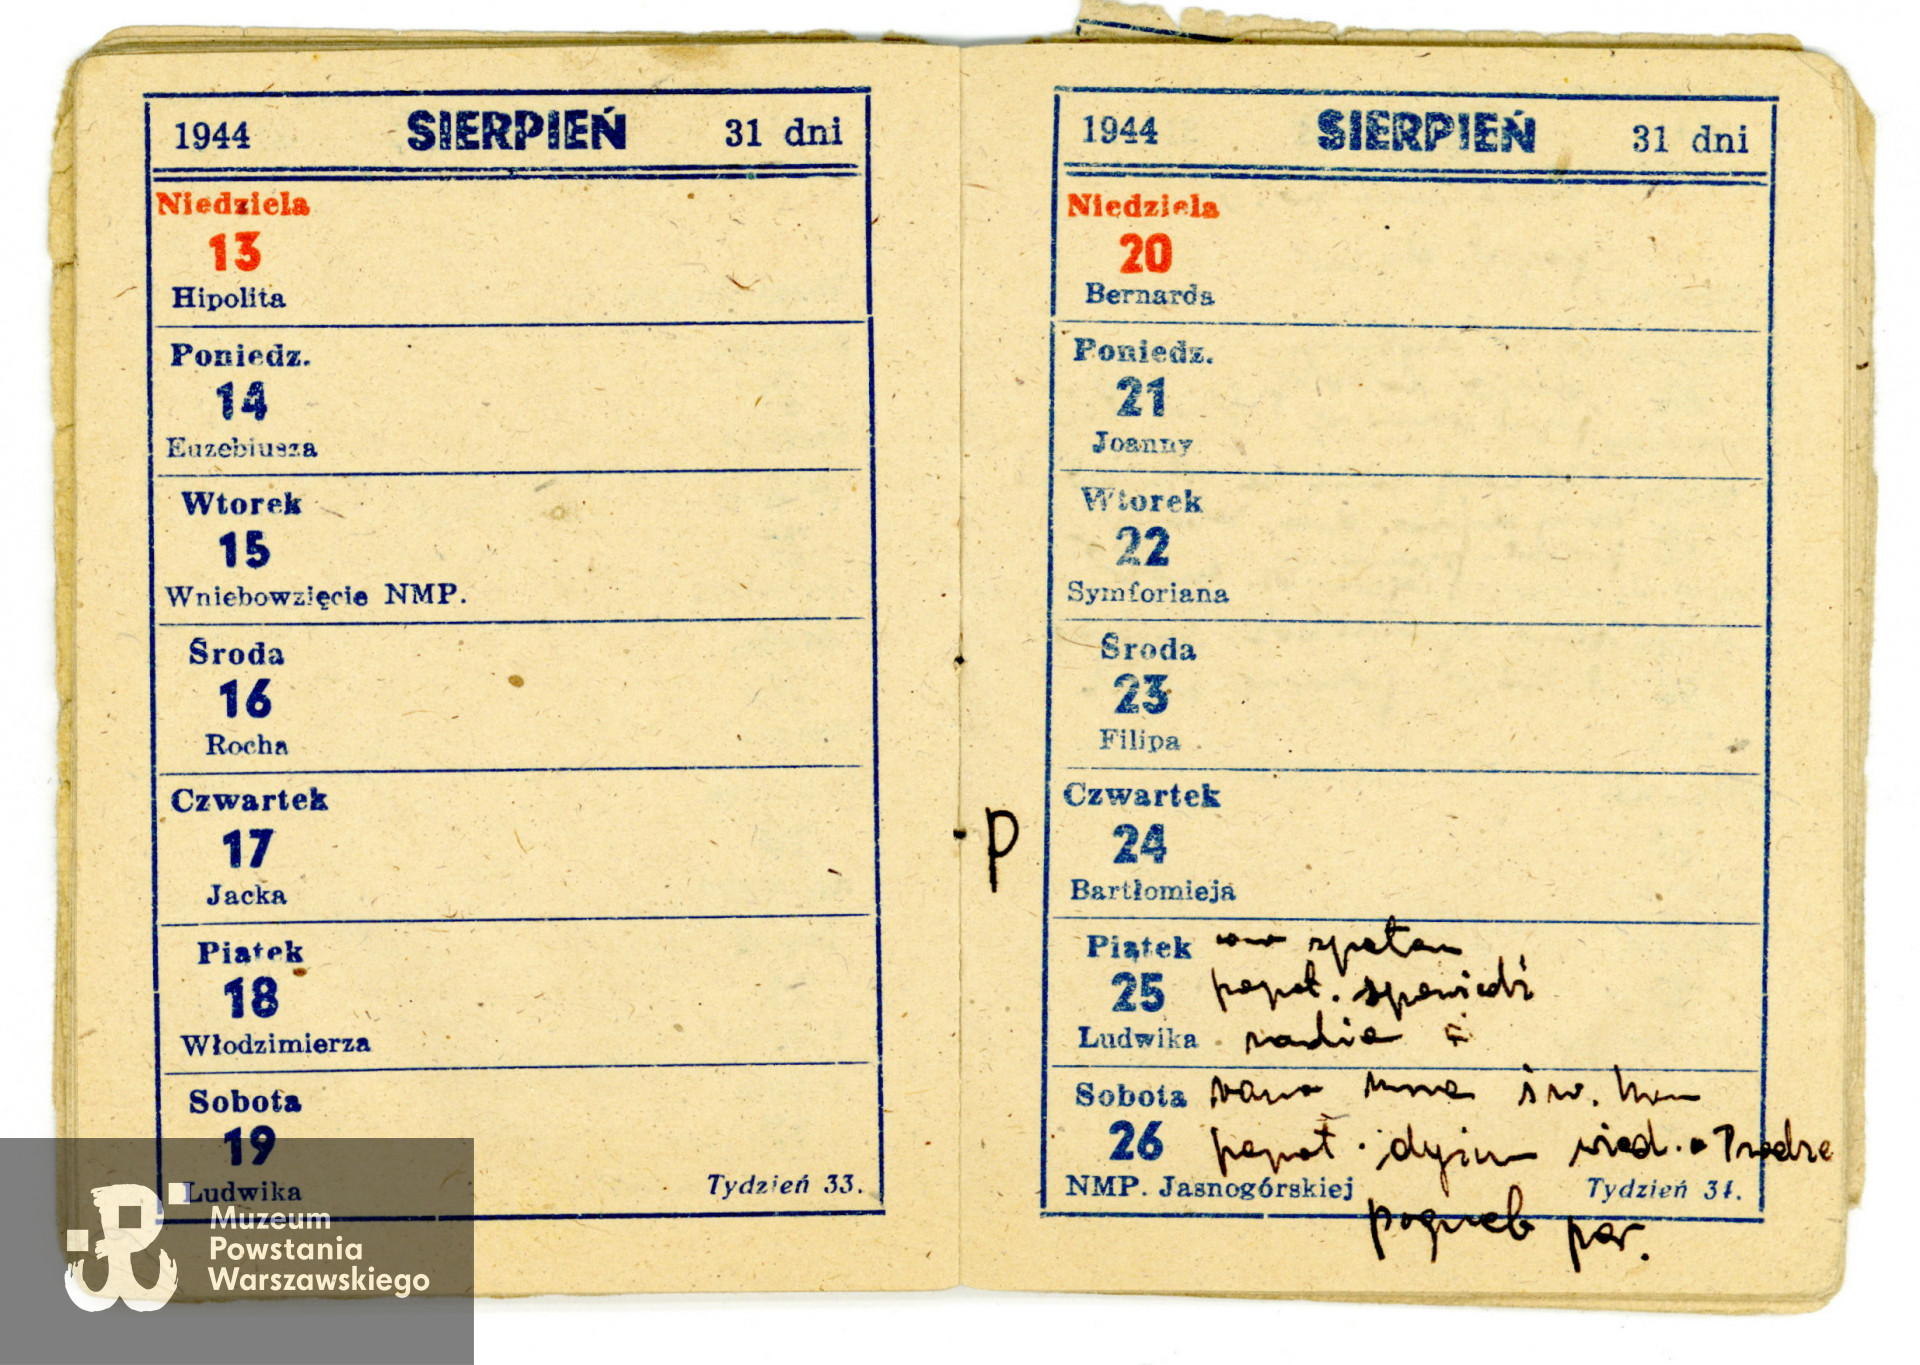 1944 SIERPIEŃ 31 dni
Niedziela
13
Hipolita
Poniedz.
14
Euzebiusza
Wtorek
15
Wniebowzięcie NMP.
Środa
16
Rocha
Czwartek
17
Jacka
Piątek
18
Włodzimierza
Sobota
19
Ludwika
Tydzień 33.
Muzeum
Powstania
Warszawskiego
P
1944 SIERPIEŃ 31 dni
Niedziela
20
Bernarda
Poniedz.
21
Joanny
Wtorek
22
Symforiana
Środa
23
Filipa
Czwartek
24
Bartłomieja
Piątek
25
Ludwika
spałam
popoł. spowiedź
radio
Sobota
26
NMP. Jasnogórskiej
rano msza św.
popoł. dyżur wiad. o
Tydzień 34.
pogrzeb